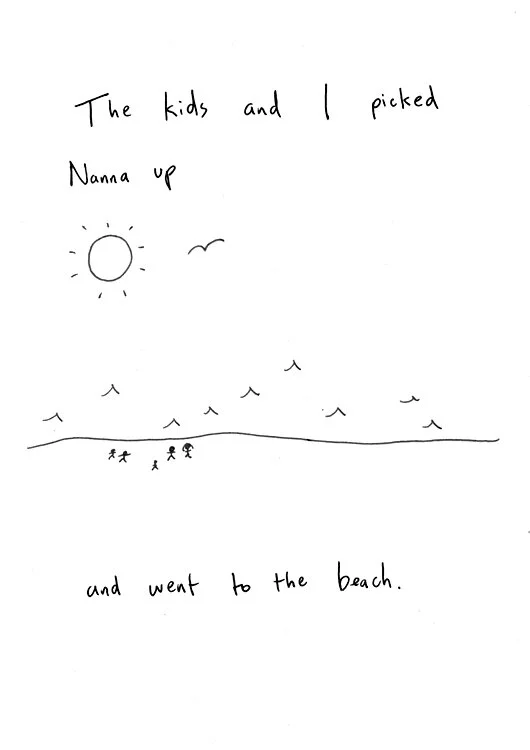 The kids and I picked
Nanna up
and went to the beach.